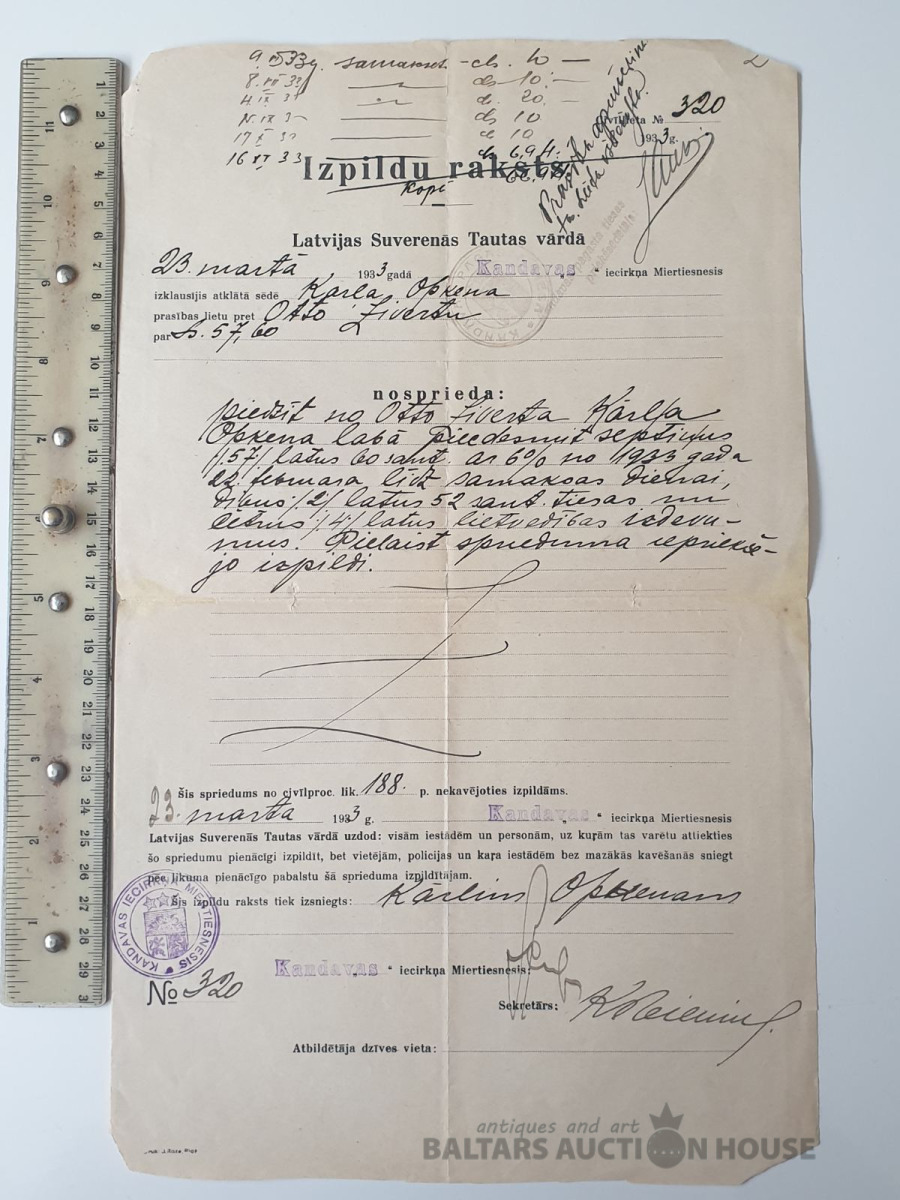 9. 33 g. samaksāt – Ls. 10 –
Ls 10.–
Ls. 20.–
Ls 10
Ls 10
16 33 Ls 6.94.
№ 320
1933 g.
Izpildu raksts
kopi
Latvijas Suverenās Tautas vārdā
23. martā 1933 gadā Kandavas iecirkņa Miertiesnesis
izklausījis atklātā sēdē Kārļa Opkena
prasības lietu pret Otto Zivertu
par Ls. 57,60
nosprieda:
piedzīt no Otto Ziverta Kārļa
Opkena labā piecdesmit septiņus
/57/ latus 60 sant. ar 6% no 1933 gada
22. februara līdz samaksas dienai,
divus /2/ latus 52 sant. tiesas un
četrus /4/ latus lietvedības izdevu-
mus. Pielaist sprieduma iepriekšē-
jo izpildi.
Šis spriedums no civīlproc. lik. 188. p. nekavējoties izpildāms.
23. martā 1933 g. Kandavas iecirkņa Miertiesnesis
Latvijas Suverenās Tautas vārdā uzdod: visām iestādēm un personām, uz kuŗām tas varētu attiekties
šo spriedumu pienācīgi izpildīt, bet vietējām, policijas un kaŗa iestādēm bez mazākās kavēšanās sniegt
pēc likuma pienācīgo pabalstu šā sprieduma izpildītājam.
Šis izpildu raksts tiek izsniegts: Kārlim Opkenam
KANDAVAS IECIRKŅA MIERTIESNESIS
Kandavas iecirkņa Miertiesnesis:
№ 320
Sekretārs:
Atbildētāja dzīves vieta:
antiques and art
BALTARS AUCTION HOUSE